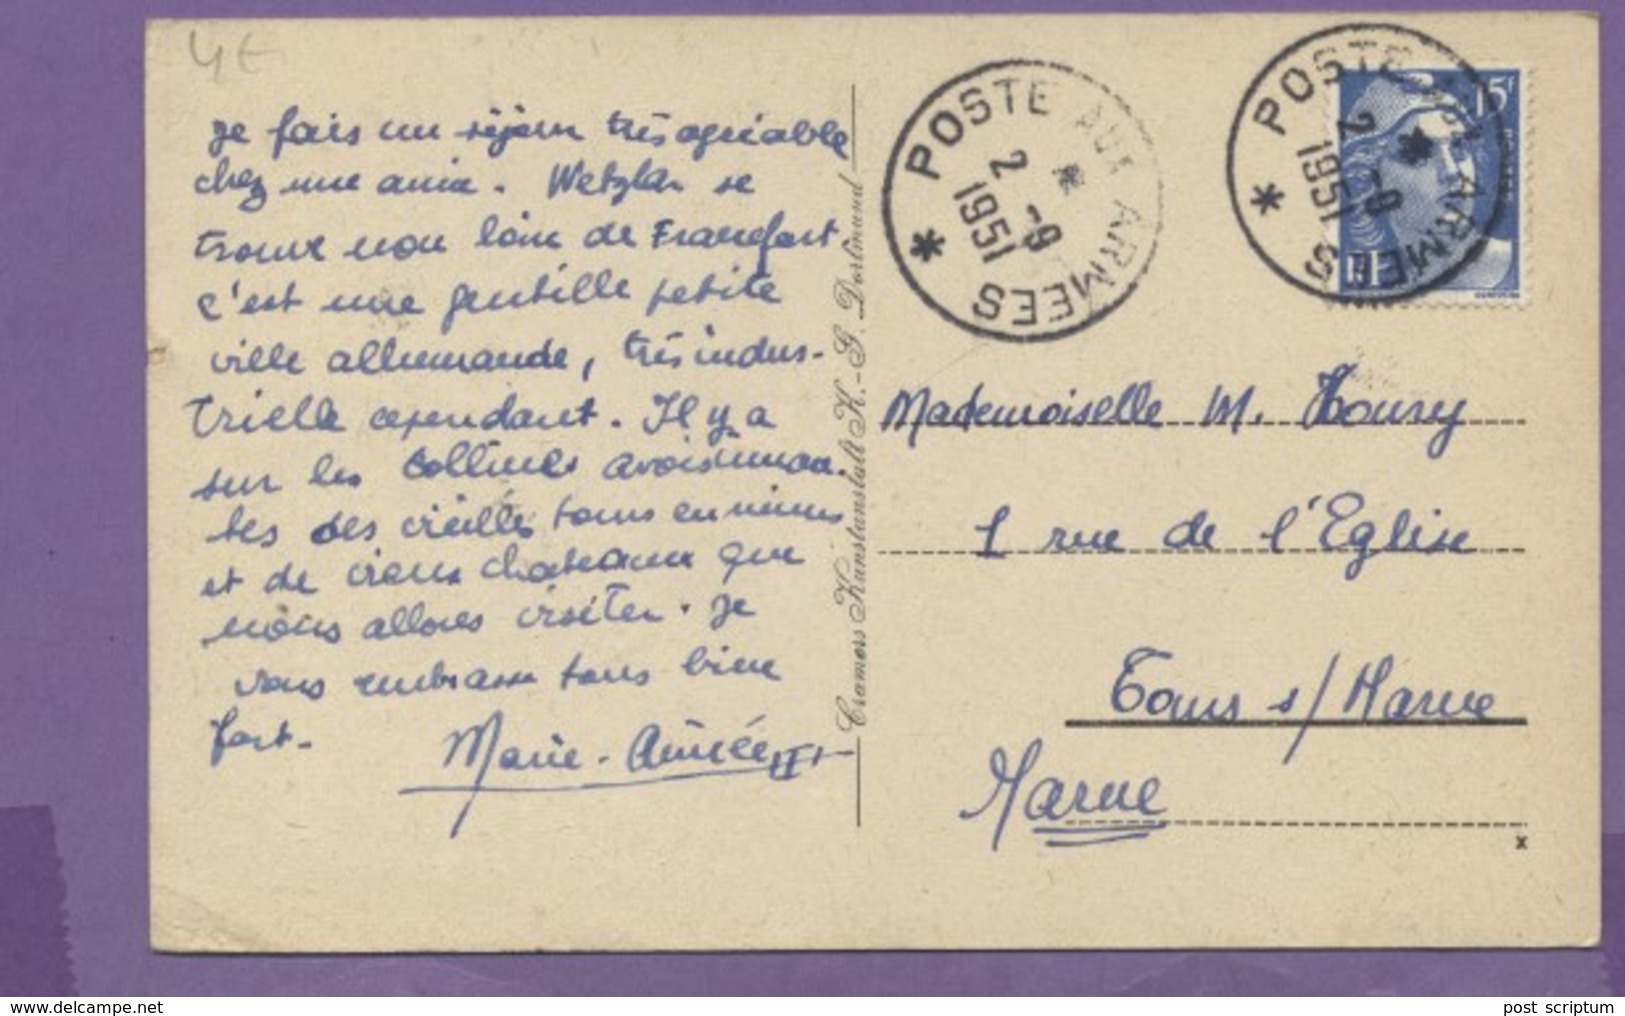 4€
Je fais un séjour très agréable
chez une amie. Wetzlar se
trouve non loin de Francfort
c'est une gentille petite
ville allemande, très indus-
trielle cependant. Il y a
sur les collines avoisinnan-
tes des vieilles tours en ruines
et de vieux chateaux que
nous allons visiter. Je
vous embrasse tous bien
fort.
Marie-Aimée
Cramers Kunstanstalt K.-G. Dortmund
POSTE AUX ARMEES
2 -9
1951
POSTE AUX ARMEES
2 -9
1951
15f
RF
Mademoiselle M.
1 rue de l'Eglise
Tours s/Marne
Marne
x
www.delcampe.net
post scriptum